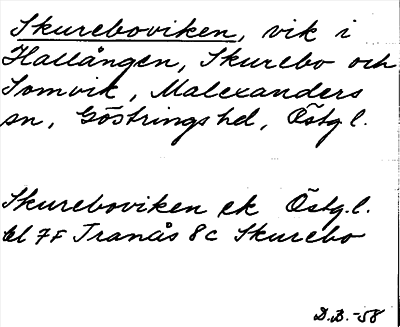 Skureboviken, vik i
Hallången, Skurebo och
Somvik, Malexanders
sn, Göstrings hd, Östg l.
Skureboviken ek Östg.l.
bl 7F Tranås 8c Skurebo
D.B. -58